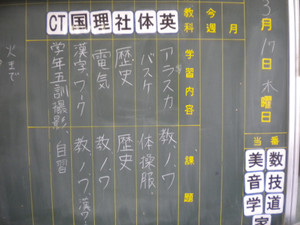 3月17日 木曜日
当番
数技道
美音学家
今週 月
教科 学習内容 課題
英 アラスカ 教、ノ、ワ
体 バスケ 体操服、
社 歴史 歴史
理 電気 教、ノ、ワ
国 漢字、ワーク 教、ノ、ワ、漢ワ
CT 学年五訓撮影、自習
火まで